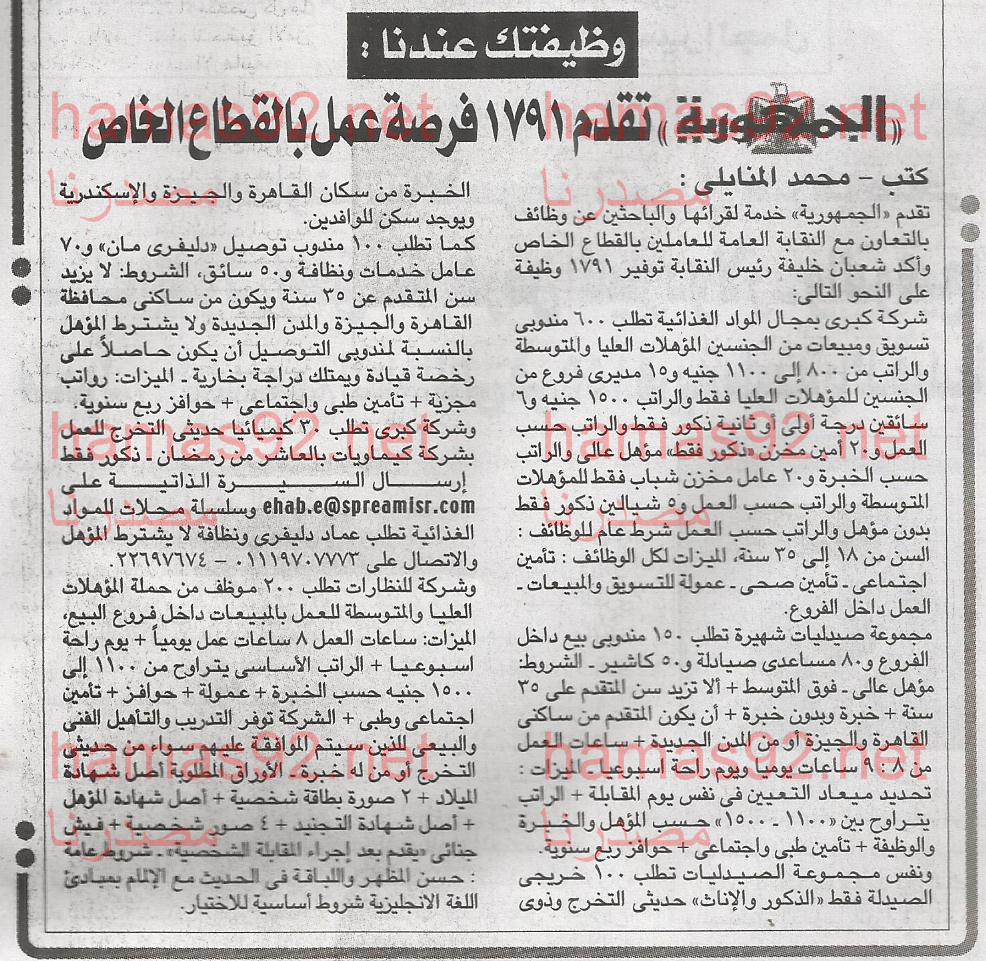 وظيفتك عندنا :
«الجمهورية» تقدم ١٧٩١ فرصة عمل بالقطاع الخاص
كتب - محمد المنايلى :
تقدم «الجمهورية» خدمة لقرائها والباحثين عن وظائف
بالتعاون مع النقابة العامة للعاملين بالقطاع الخاص
وأكد شعبان خليفة رئيس النقابة توفير ١٧٩١ وظيفة
على النحو التالى:
شركة كبرى بمجال المواد الغذائية تطلب ٦٠٠ مندوبى
تسويق ومبيعات من الجنسين المؤهلات العليا والمتوسطة
والراتب من ٨٠٠ إلى ١١٠٠ جنيه و١٥ مديرى فروع من
الجنسين للمؤهلات العليا فقط والراتب ١٥٠٠ جنيه و٦
سائقين درجة أولى أو ثانية ذكور فقط والراتب حسب
العمل و٢٠ أمين مخزن «ذكور فقط» مؤهل عالى والراتب
حسب الخبرة و٢٠ عامل مخزن شباب فقط للمؤهلات
المتوسطة والراتب حسب العمل و٥ شيالين ذكور فقط
بدون مؤهل والراتب حسب العمل شرط عام للوظائف :
السن من ١٨ إلى ٣٥ سنة، الميزات لكل الوظائف : تأمين
اجتماعى ـ تأمين صحى ـ عمولة للتسويق والمبيعات ـ
العمل داخل الفروع.
مجموعة صيدليات شهيرة تطلب ١٥٠ مندوبى بيع داخل
الفروع و٨٠ مساعدى صيادلة و٥٠ كاشير ـ الشروط:
مؤهل عالى ـ فوق المتوسط + ألا تزيد سن المتقدم على ٣٥
سنة + خبرة وبدون خبرة + أن يكون المتقدم من ساكنى
القاهرة والجيزة أو من المدن الجديدة + ساعات العمل
من ٨ : ٩ ساعات يوميا ويوم راحة اسبوعيا ـ الميزات :
تحديد ميعاد التعيين فى نفس يوم المقابلة + الراتب
يتراوح بين «١١٠٠ ـ ١٥٠٠» حسب المؤهل والخبرة
والوظيفة + تأمين طبى واجتماعى + حوافز ربع سنوية.
ونفس مجموعة الصيدليات تطلب ١٠٠ خريجى
الصيدلة فقط «الذكور والإناث» حديثى التخرج وذوى
الخبرة من سكان القاهرة والجيزة والإسكندرية
ويوجد سكن للوافدين.
كما تطلب ١٠٠ مندوب توصيل «دليفرى مان» و٧٠
عامل خدمات ونظافة و٥٠ سائق، الشروط: لا يزيد
سن المتقدم عن ٣٥ سنة ويكون من ساكنى محافظة
القاهرة والجيزة والمدن الجديدة ولا يشترط المؤهل
بالنسبة لمندوبى التوصيل أن يكون حاصلاً على
رخصة قيادة ويمتلك دراجة بخارية ـ الميزات: رواتب
مجزية + تأمين طبى واجتماعى + حوافز ربع سنوية.
وشركة كبرى تطلب ٣٠ كيميائيا حديثى التخرج للعمل
بشركة كيماويات بالعاشر من رمضان . ذكور فقط
إرسال السيرة الذاتية على
ehab.e@spreamisr.com وسلسلة محلات للمواد
الغذائية تطلب عماد دليفرى ونظافة لا يشترط المؤهل
والاتصال على ٠١١١٩٧٠٧٧٧٣ - ٢٢٦٩٧٦٧٤
وشركة للنظارات تطلب ٢٠٠ موظف من حملة المؤهلات
العليا والمتوسطة للعمل بالمبيعات داخل فروع البيع،
الميزات: ساعات العمل ٨ ساعات عمل يومياً + يوم راحة
اسبوعيا + الراتب الأساسى يتراوح من ١١٠٠ إلى
١٥٠٠ جنيه حسب الخبرة + عمولة + حوافز + تأمين
اجتماعى وطبى + الشركة توفر التدريب والتأهيل الفنى
والبيعى للذين سيتم الموافقة عليهم سواء من حديثى
التخرج أو من له خبرة ـ الأوراق المطلوبة أصل شهادة
الميلاد + ٢ صورة بطاقة شخصية + أصل شهادة المؤهل
+ أصل شهادة التجنيد + ٤ صور شخصية + فيش
جنائى «يقدم بعد إجراء المقابلة الشخصية» ـ شروط عامة
: حسن المظهر واللباقة فى الحديث مع الإلمام بمبادئ
اللغة الانجليزية شروط أساسية للاختيار.
hamas92.net
hamas92.net
مصدرنا
مصدرنا
hamas92.net
hamas92.net
مصدرنا
مصدرنا
hamas92.net
hamas92.net
مصدرنا
مصدرنا